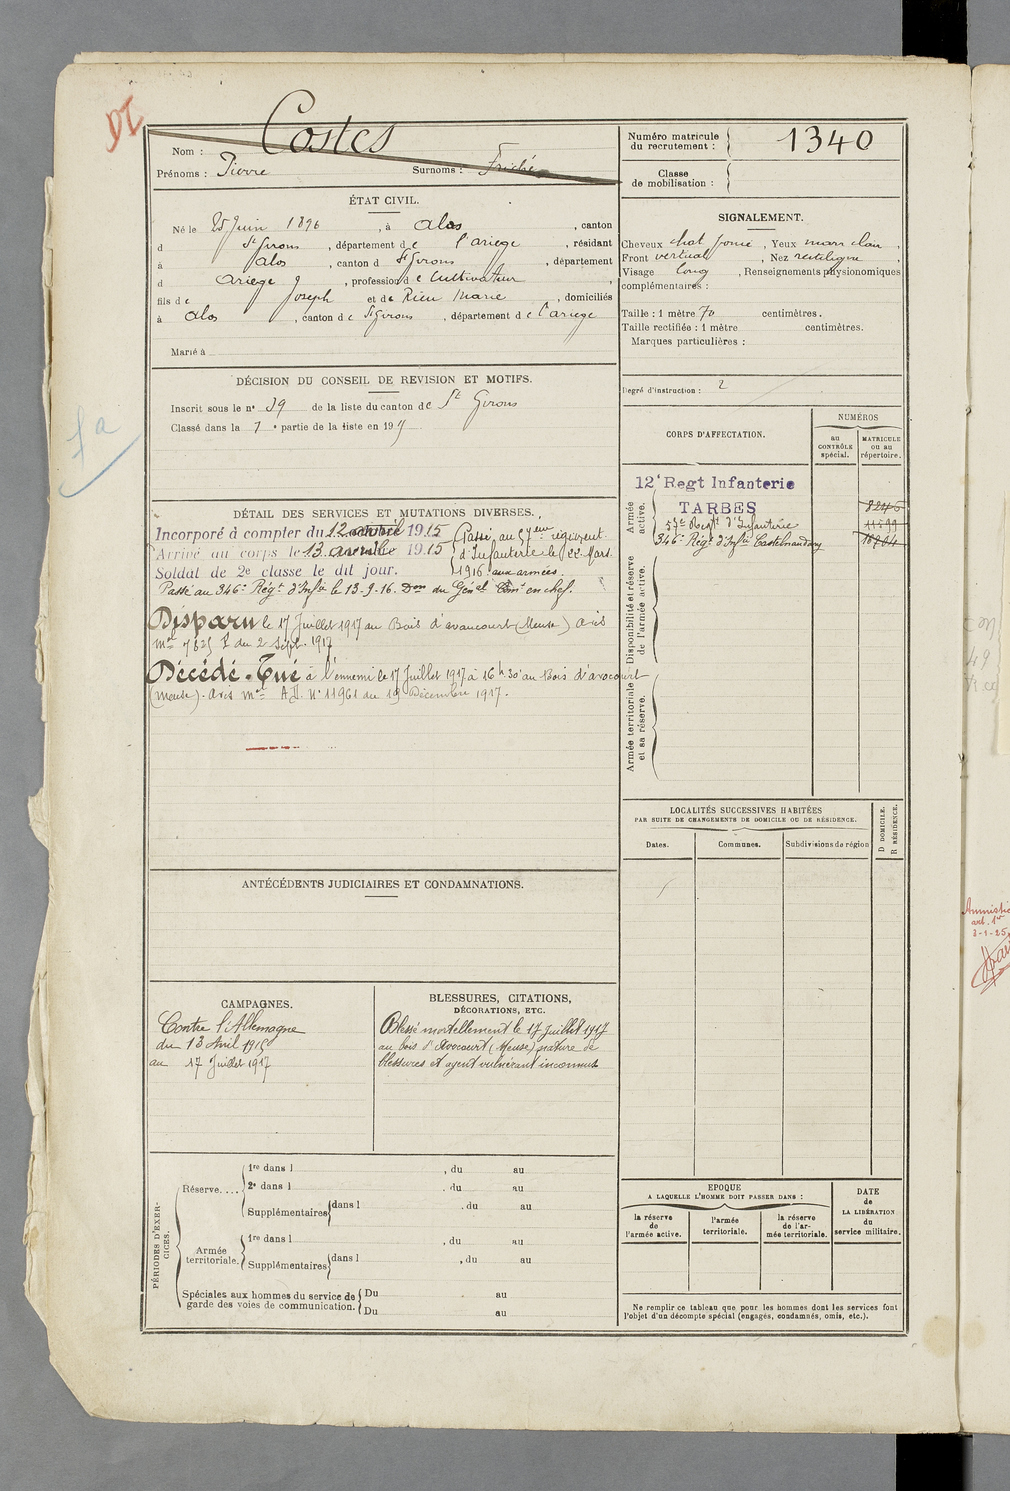 DI
Nom : Costes
Prénoms : Pierre Surnoms :
Numéro matricule du recrutement : 1340
Classe de mobilisation :
ÉTAT CIVIL.
Né le 25 Juin 1896, à Alos, canton
d St Girons, département de l'ariege, résidant
à Alos, canton d St Girons, département
d Ariege, profession de Cultivateur
fils de Joseph et de Rieu Marie, domiciliés
à Alos, canton de St Girons, département de l'ariege
Marié à
SIGNALEMENT.
Cheveux chat foncé, Yeux marr clair,
Front vertical, Nez rectiligne,
Visage long, Renseignements physionomiques
complémentaires :
Taille : 1 mètre 70 centimètres.
Taille rectifiée : 1 mètre centimètres.
Marques particulières :
Degré d'instruction : 2
DÉCISION DU CONSEIL DE REVISION ET MOTIFS.
Inscrit sous le no 39 de la liste du canton de St Girons
Classé dans la 1e partie de la liste en 19
CORPS D'AFFECTATION.
NUMÉROS
au CONTRÔLE spécial.
MATRICULE ou au répertoire.
Armée active.
12e Regt Infanterie
TARBES
57e Regt d'Infanterie 11599
346e Régt d'Infie Castelnaudary
Disponibilité et réserve de l'armée active.
Armée territoriale et sa réserve.
DÉTAIL DES SERVICES ET MUTATIONS DIVERSES.
Incorporé à compter du 12 avril 1915
Arrivé au corps le 13 avril 1915
Soldat de 2e classe le dit jour.
Passé au 57eme régiment
d'Infanterie le 22 Mars
1916 aux armées.
Passé au 346e Régt d'Infie le 13-9-16. Don du Génal Comt en chef.
Disparu le 17 Juillet 1917 au Bois d'avaucourt (Meuse) avis
mel du 2 Sept. 1917
Décédé - Tué à l'ennemi le 17 Juillet 1917 à 16h30 au Bois d'avocourt
(Meuse). avis mel No 11961 du 19 Décembre 1917.
LOCALITÉS SUCCESSIVES HABITÉES
PAR SUITE DE CHANGEMENTS DE DOMICILE OU DE RÉSIDENCE.
Dates. Communes. Subdivisions de région
D DOMICILE.
R RÉSIDENCE.
ANTÉCÉDENTS JUDICIAIRES ET CONDAMNATIONS.
CAMPAGNES.
Contre l'Allemagne
du 13 Avril 1915
au 17 Juillet 1917
BLESSURES, CITATIONS,
DÉCORATIONS, ETC.
Blessé mortellement le 17 Juillet 1917
au bois d'Avocourt (Meuse) nature de
blessures et agent vulnérant inconnus
PÉRIODES D'EXERCICES.
Réserve....
1re dans l , du au
2e dans l , du au
Supplémentaires dans l , du au
Armée territoriale.
1re dans l , du au
Supplémentaires dans l , du au
Spéciales aux hommes du service de
garde des voies de communication.
Du au
Du au
EPOQUE
A LAQUELLE L'HOMME DOIT PASSER DANS :
la réserve de l'armée active.
l'armée territoriale.
la réserve de l'armée territoriale.
DATE de LA LIBÉRATION du service militaire.
Ne remplir ce tableau que pour les hommes dont les services font
l'objet d'un décompte spécial (engagés, condamnés, omis, etc.).
Amnistie
art. 1er
3-1-25